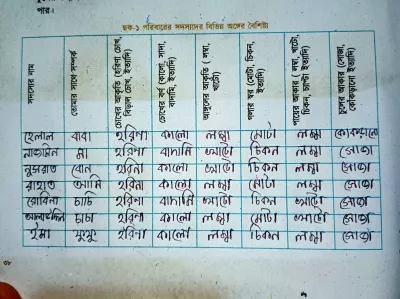 পার।
ছক-১ পরিবারের সদস্যদের বিভিন্ন অঙ্গের বৈশিষ্ট্য
সদস্যের নাম
তোমার সাথে সম্পর্ক
চোখের আকৃতি (হরিণা চোখ, বিড়াল চোখ, ইত্যাদি)
চোখের বর্ণ (কালো, সাদা, বাদামি, ইত্যাদি)
আঙ্গুলের আকৃতি ( লম্বা, খাটো ইত্যাদি)
গলার স্বর (মোটা, চিকন, ইত্যাদি)
পায়ের আকার ( লম্বা, খাটো, চিকন, মোটা ইত্যাদি)
চুলের আকার (সোজা, কোঁকড়ানো ইত্যাদি)
হেলাল বাবা হরিনা কালো লম্বা মোটা লম্বা কোকড়ানো
মা হরিনা বাদামি খাটো চিকন খাটো সোজা
নুসরাত বোন হরিনা কালো লম্বা চিকন লম্বা সোজা
রাহাত আমি হরিনা কালো লম্বা মোটা লম্বা সোজা
রোবিনা চাচি হরিনা বাদামি খাটো চিকন খাটো সোজা
চাচা হরিনা কালো লম্বা মোটা খাটো সোজা
ইমা ফুফু হরিনা কালো লম্বা চিকন লম্বা সোজা
৩৮